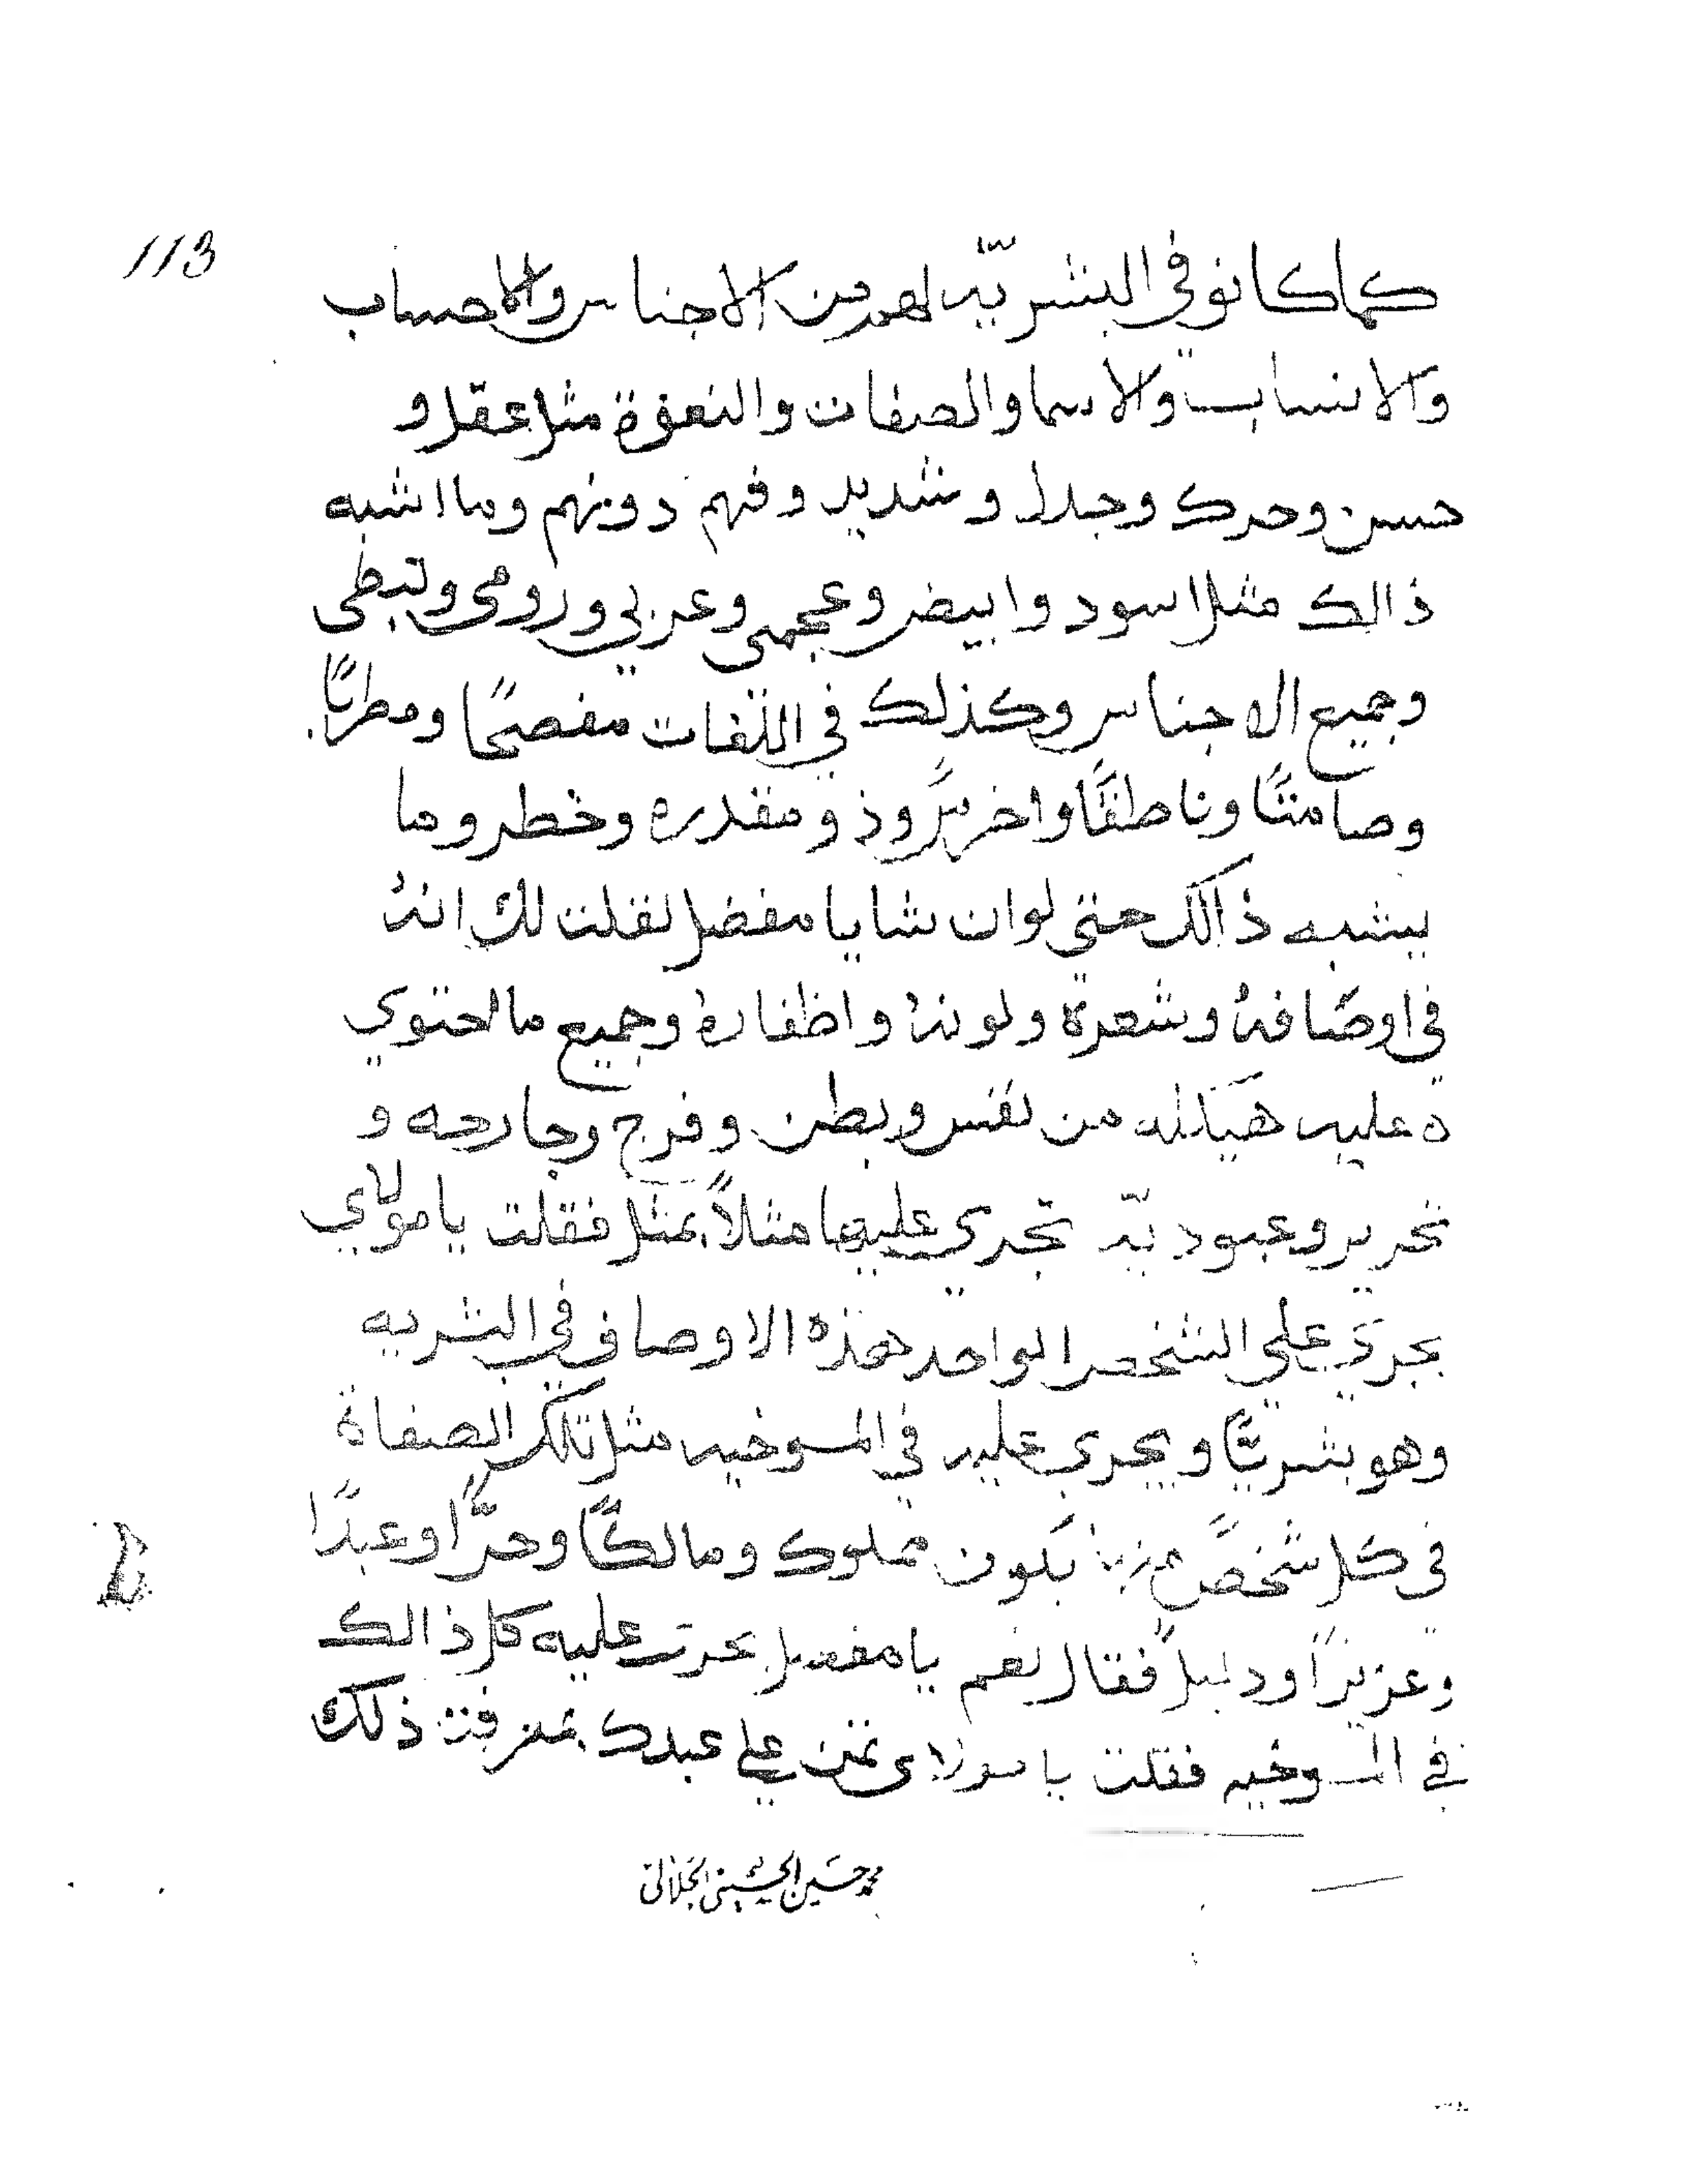 113
كما كانو في البشريّه لهم من الاجناس والاحساب
والانساب والاسما والصفات والنعوة مثل عقل و
حسن وحرك وجدل و شديد وفهم دونهم وما اشبه
ذالك مثل اسود وابيض وعجمي وعربي ورومي ونبطي
وجميع الاجناس وكذلك في اللغات مفصحًا ومطربًا
وصامتًا وناطقًا واخرسً وذو مقدره وخطر وما
يشبه ذالك حتى لو ان شا يا مفضل لقلت لك انهُ
في اوصافهُ وشعرة ولونهُ واظفارهُ وجميع ما احتوي
ه عليه هيكله من نفس وبطن وفرج وجارحه و
تحرير وعبوديّه تجري عليها مثلاً بمثل فقلت يا مولاي
يجري علي الشخص الواحد هذه الاوصاف في البشريه
وهو بشريًّا ويجري عليه في المسوخيه مثل تلك الصفاة
في كل شخصً يكون مملوك ومالكًا وحرًّا وعبدًا
وعزيزًا ودليلً فقال نعم يا مفضل يجرى عليه كل ذالك
في المسوخيه فقلت يا مولاي تمن علي عبدك بمعرفت ذلك
محمد حسين الحسيني الجلالي